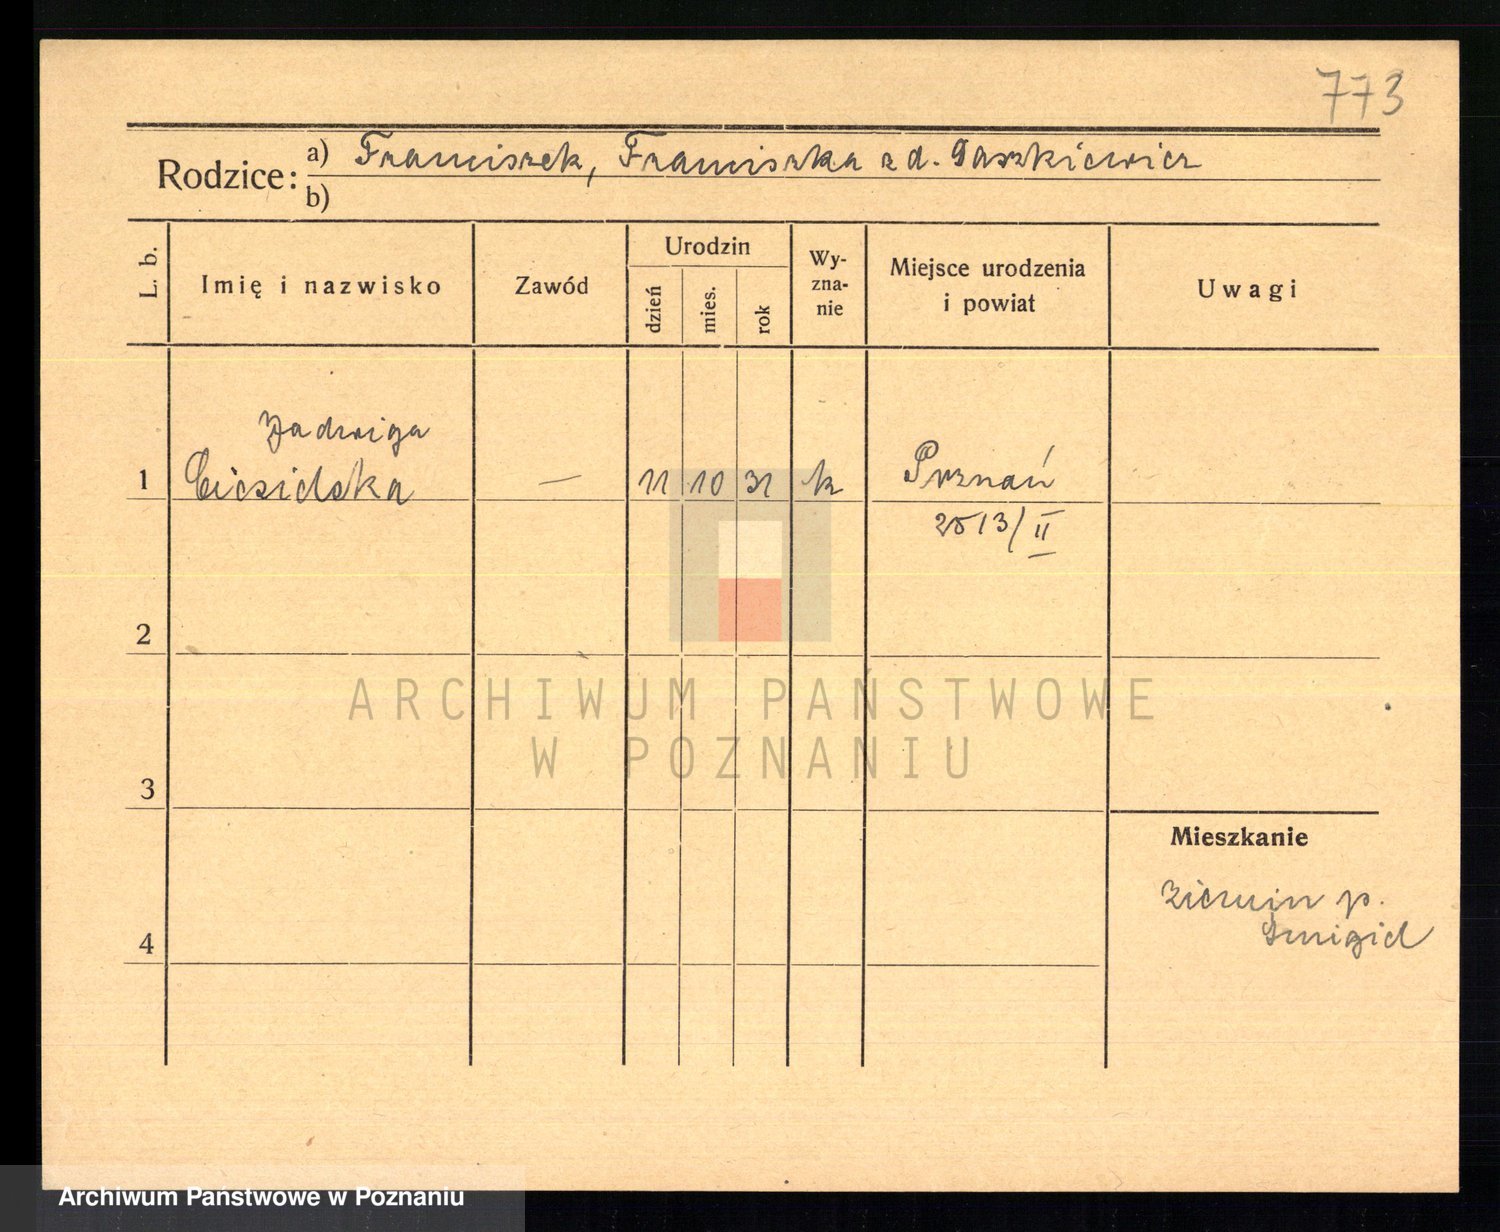 773
Rodzice: a) Franciszek, Franciszka z d. Jaszkiewicz
b)
L. b.
Imię i nazwisko
Zawód
Urodzin
dzień
mies.
rok
Wy-
zna-
nie
Miejsce urodzenia
i powiat
Uwagi
Jadwiga
1 Ciesielska — 11 10 31 k Poznań
2513/II
2
ARCHIWUM PAŃSTWOWE
W POZNANIU
3
Mieszkanie
p.
Śmigiel
4
Archiwum Państwowe w Poznaniu